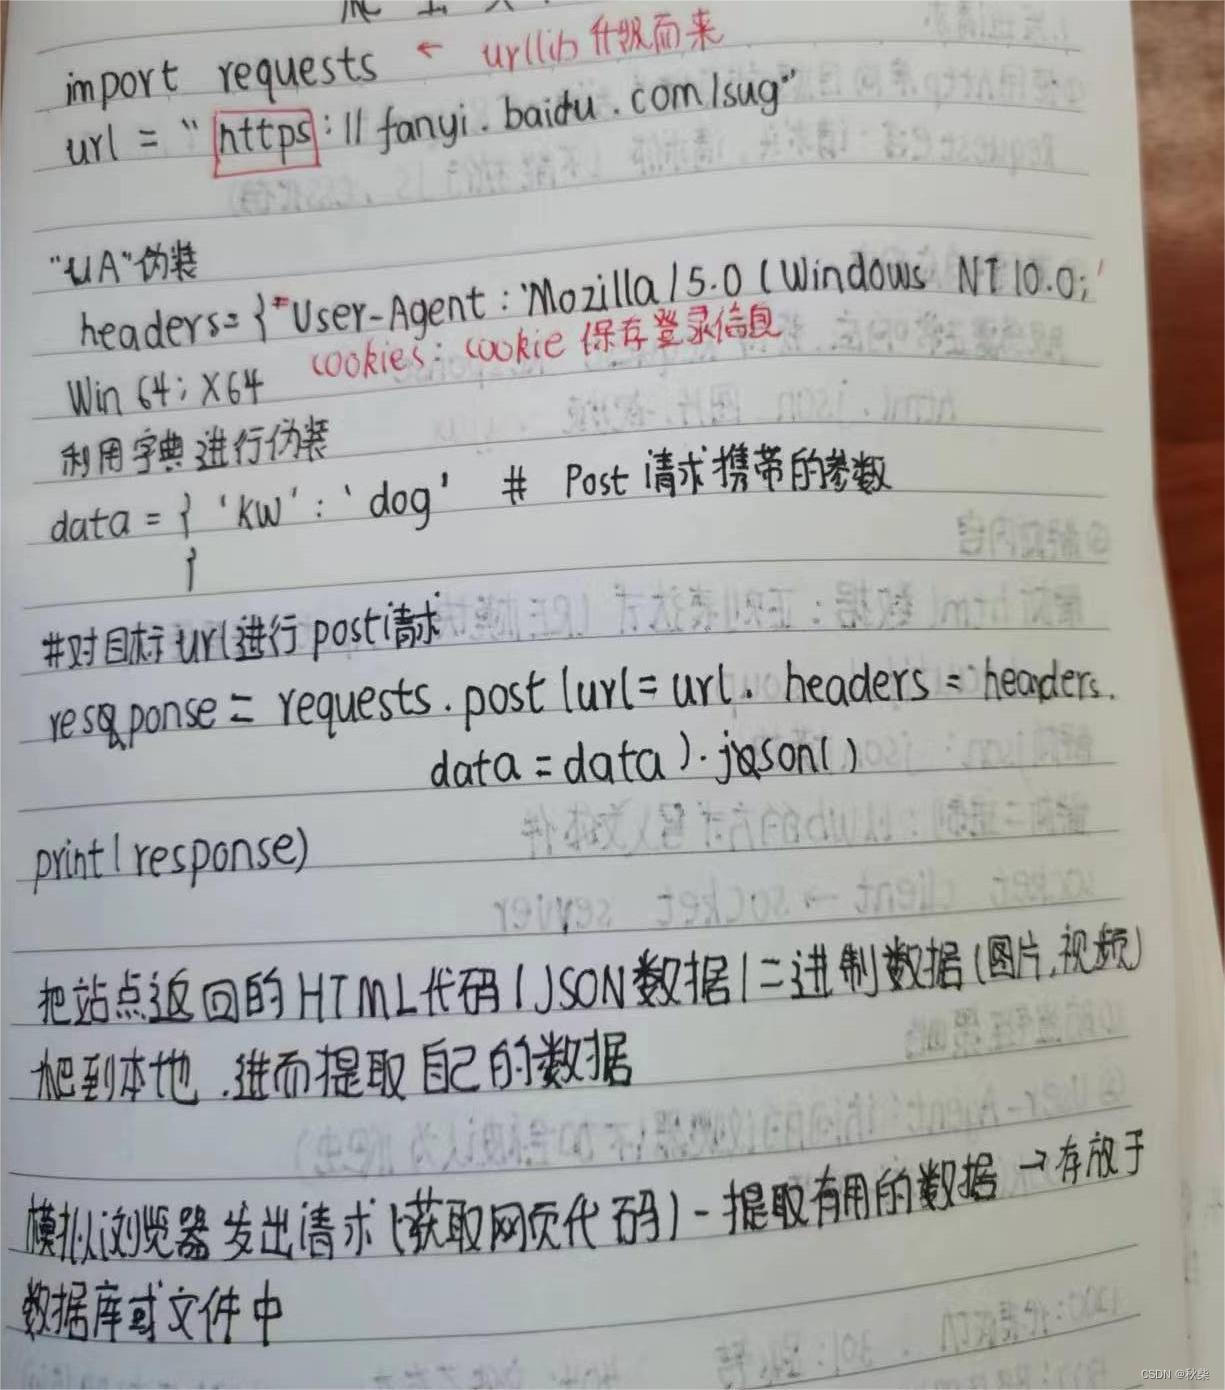 import requests ← urllib 升级而来
url = " https://fanyi.baidu.com/sug"
"UA"伪装
headers={ "User-Agent : 'Mozilla/5.0 (Windows NT 10.0; '
cookies: cookie 保存登录信息
Win 64; X64
利用字典进行伪装
data = { 'kw' : 'dog' # Post 请求携带的参数
}
#对目标url进行post请求
response = requests.post(url=url, headers = headers,
data = data).json()
print(response)
把站点返回的HTML代码/JSON数据/二进制数据(图片,视频)
爬到本地,进而提取自己的数据
模拟浏览器发出请求(获取网页代码)-提取有用的数据 →存放于
数据库或文件中
CSDN @秋柴